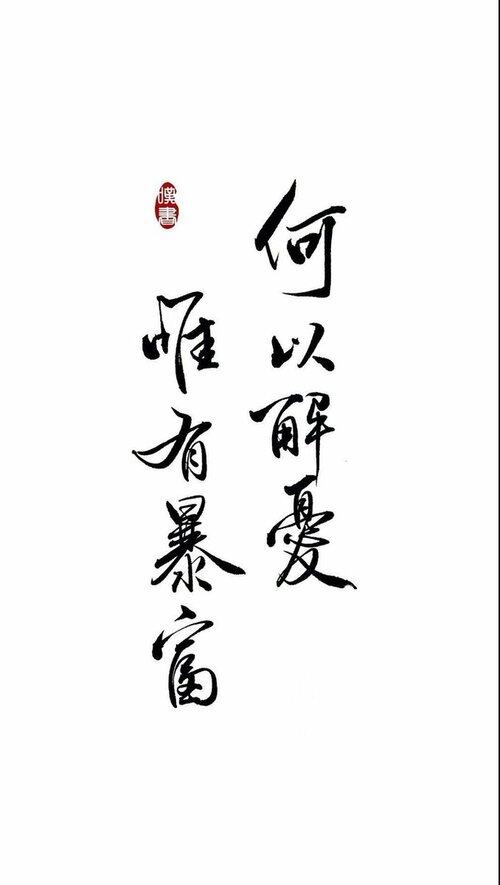 何以解憂
惟有暴富
漢書